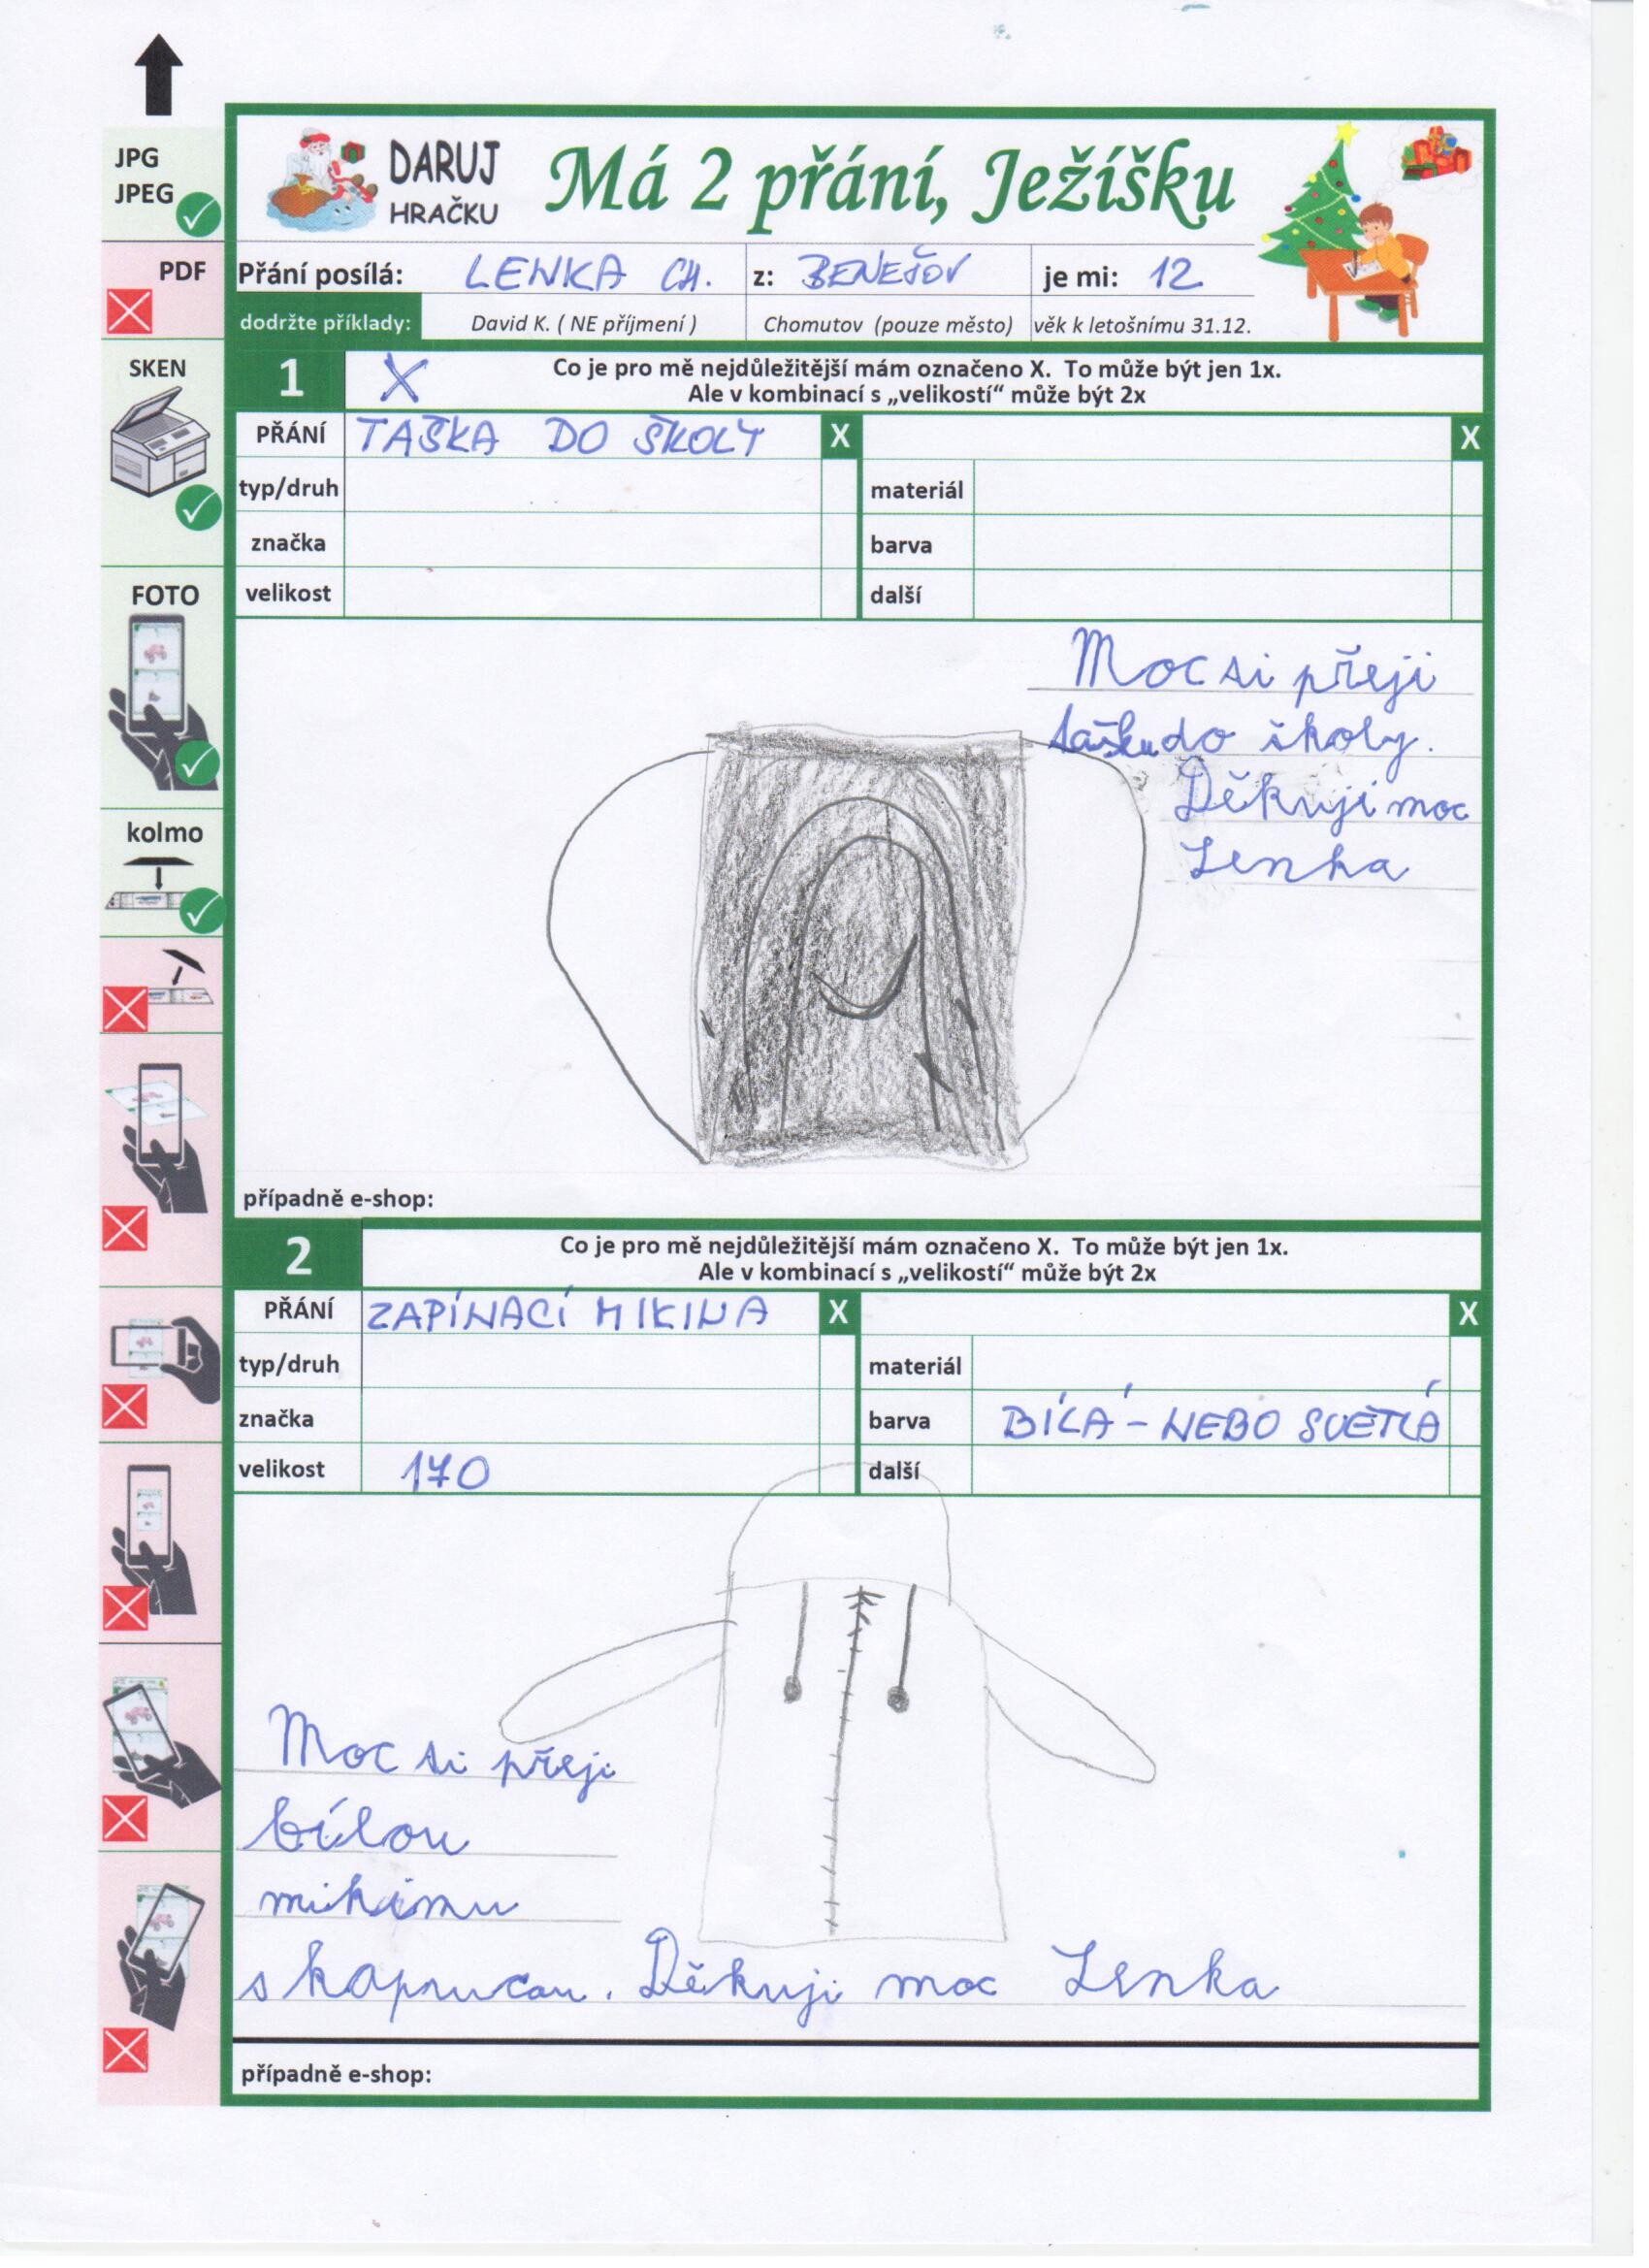 JPG
JPEG
PDF
SKEN
FOTO
kolmo
DARUJ
HRAČKU
Má 2 přání, Ježíšku
Přání posílá: LENKA CH. z: BENEŠOV je mi: 12
dodržte příklady: David K. ( NE příjmení ) Chomutov (pouze město) věk k letošnímu 31.12.
1 X Co je pro mě nejdůležitější mám označeno X. To může být jen 1x.
Ale v kombinací s „velikostí“ může být 2x
PŘÁNÍ TAŠKA DO ŠKOLY X X
typ/druh materiál
značka barva
velikost další
Moc si přeji
tašku do školy.
Děkuji moc
Lenka
případně e-shop:
2 Co je pro mě nejdůležitější mám označeno X. To může být jen 1x.
Ale v kombinací s „velikostí“ může být 2x
PŘÁNÍ ZAPÍNACÍ MIKINA X X
typ/druh materiál
značka barva BÍLÁ - NEBO SVĚTLÁ
velikost 170 další
Moc si přeji
bílou
mikinu
s kapucou. Děkuji moc Lenka
případně e-shop: